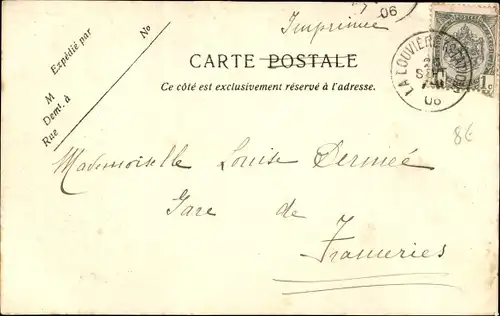 06
Imprimée
Expédié par
M
Demt. à
Rue
No
CARTE POSTALE
Ce côté est exclusivement réservé à l'adresse.
LA LOUVIÈRE
SEPT
06
8€
Mademoiselle Louise Dermée
Gare de
Frameries